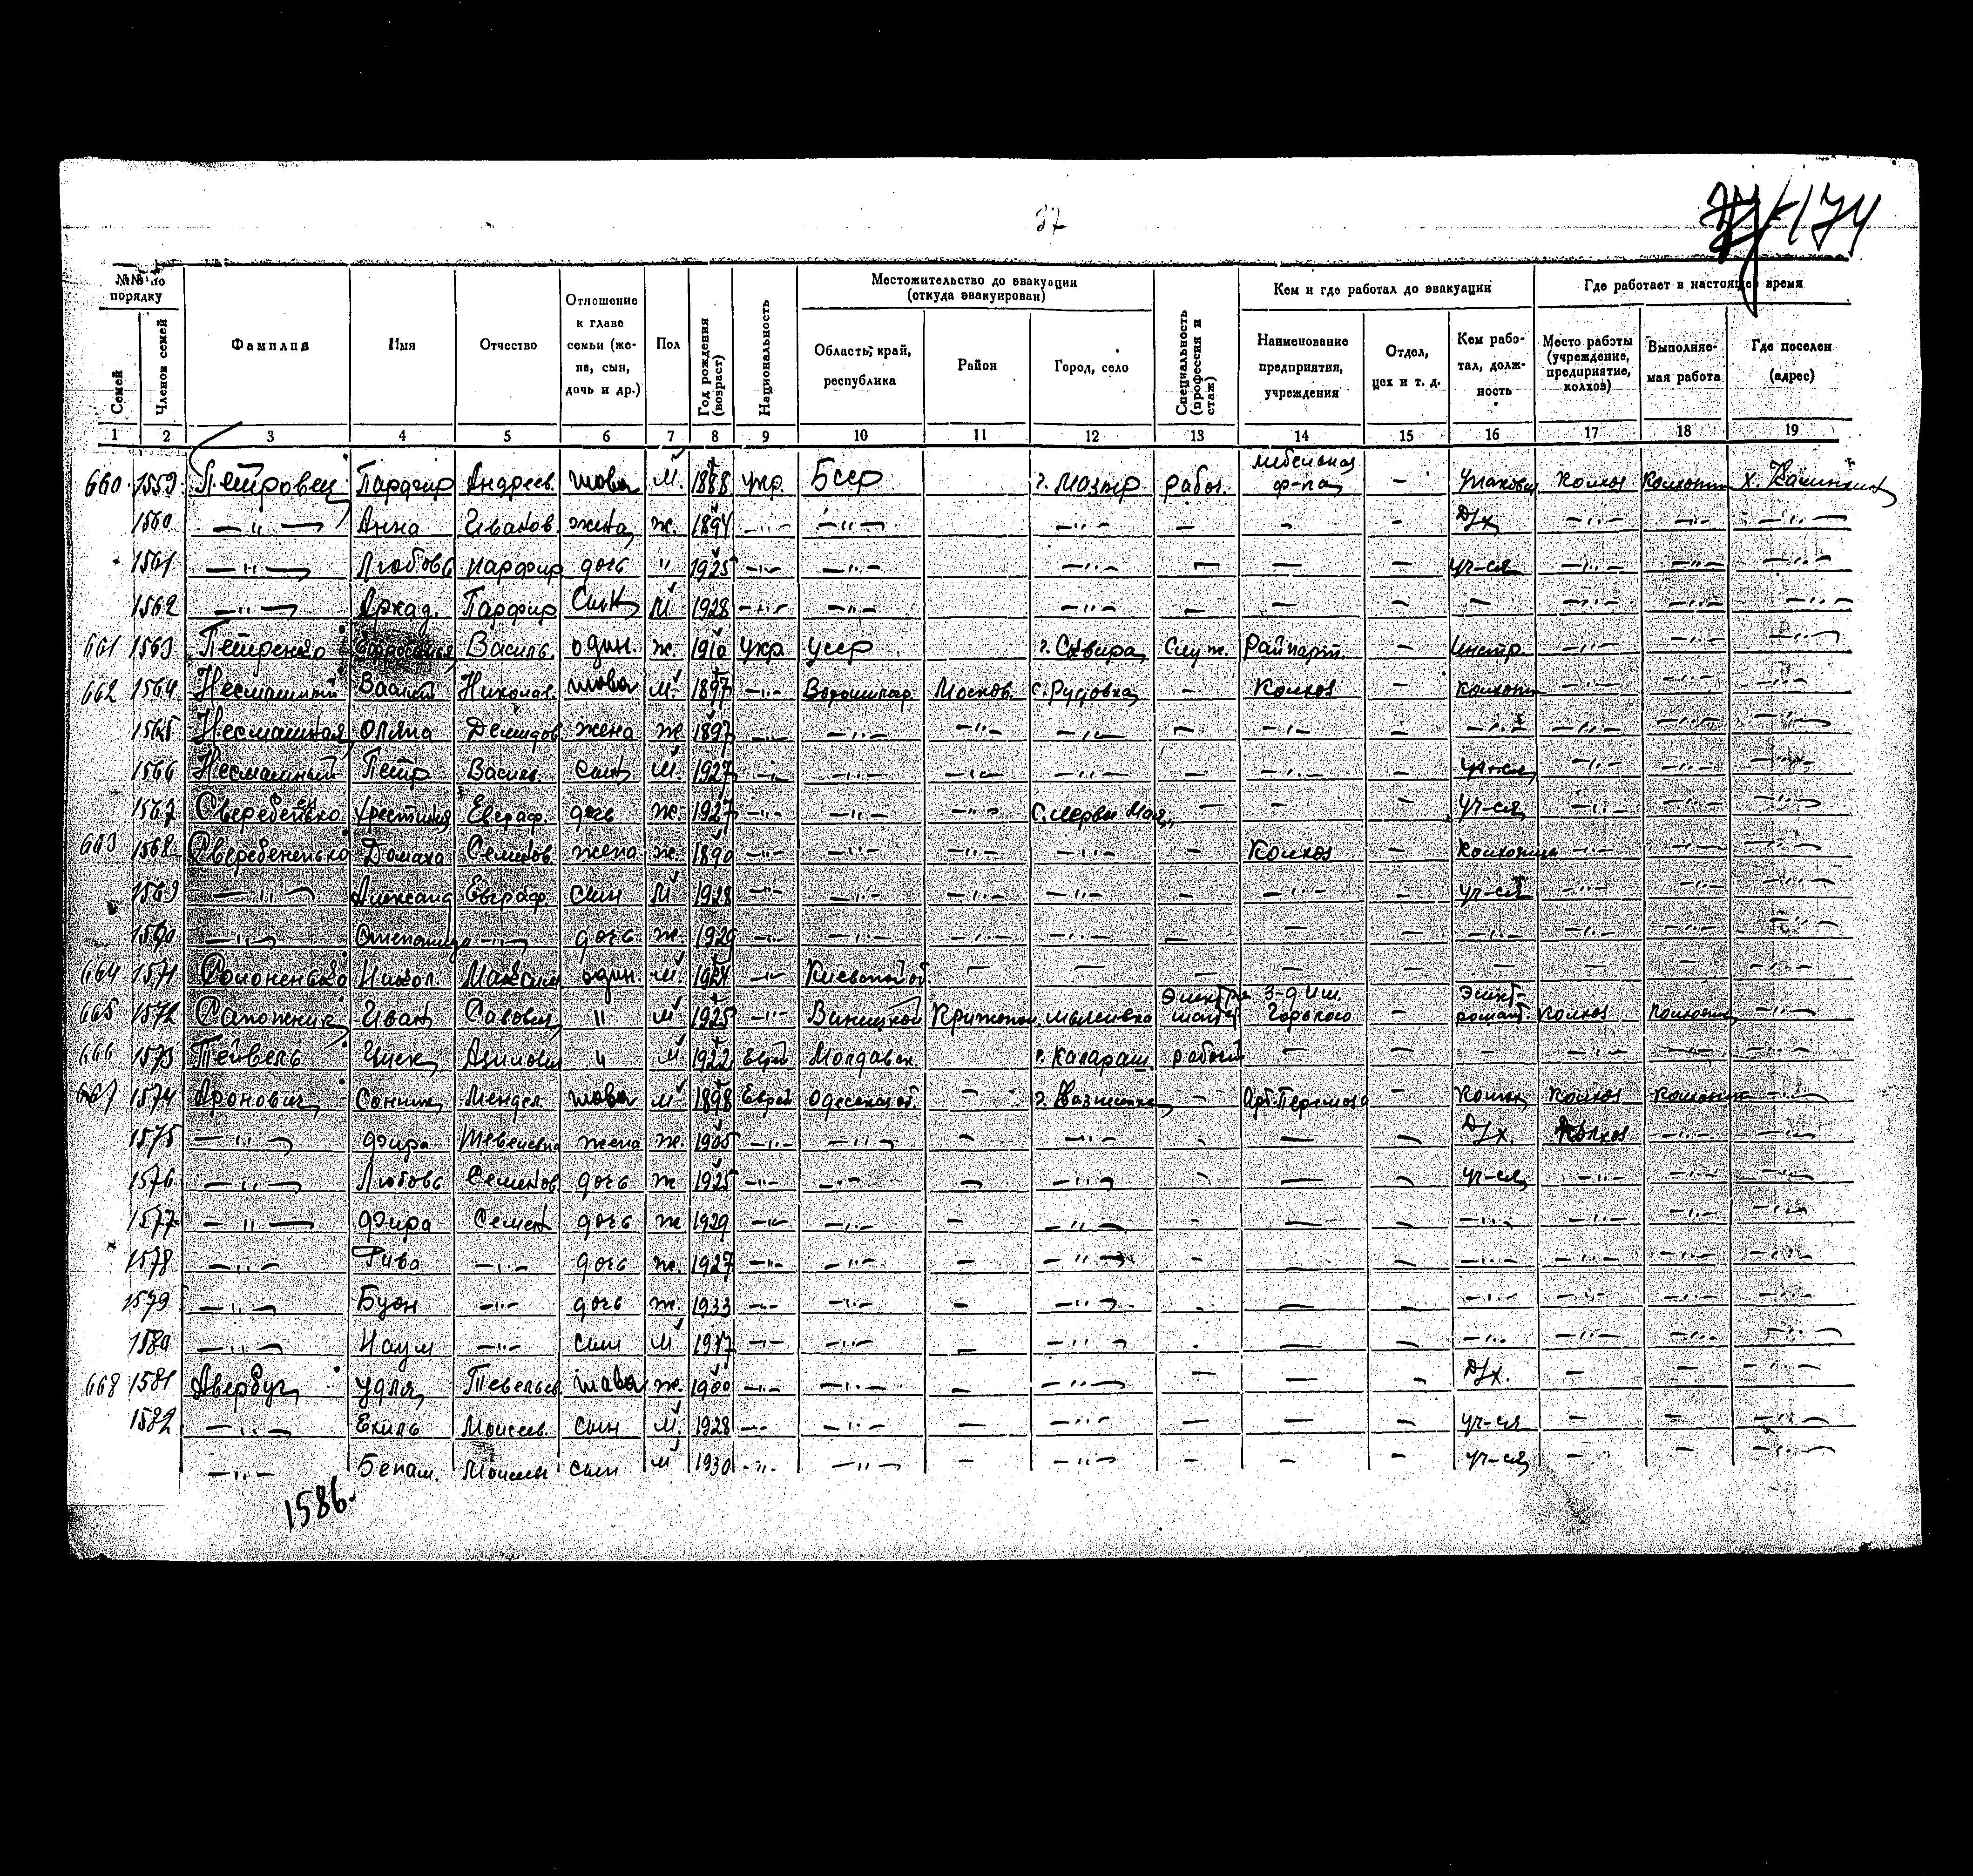 87
174
№№ по порядку
Местожительство до эвакуации (откуда эвакуирован)
Кем и где работал до эвакуации
Где работает в настоящее время
Семей
Членов семей
Фамилия
Имя
Отчество
Отношение к главе семьи (жена, сын, дочь и др.)
Пол
Год рождения (возраст)
Национальность
Область, край, республика
Район
Город, село
Специальность (профессия и стаж)
Наименование предприятия, учреждения
Отдел, цех и т. д.
Кем работал, должность
Место работы (учреждение, предприятие, колхоз)
Выполняемая работа
Где поселен (адрес)
1 2 3 4 5 6 7 8 9 10 11 12 13 14 15 16 17 18 19
660 1559 Петровец Парфир Андреев. глава м. 1888 укр. Бсср г. Мозыр рабоч. мебельная ф-ка — колхоз
1560 —"— Анна Иванов. жена ж. 1894 —"— —"— —"— — — — Д/х —"— —"— —"—
1561 —"— Любовь Парфир дочь " 1925 —"— —"— —"— — — — уч-ся —"— —"— —"—
1562 —"— Аркад. Парфир сын м 1928 —"— —"— —"— — — — — —"— —"— —"—
661 1563 Петренко Василь. один. ж. 1910 укр усср г. Сквира служ. Райпарт. — инстр —"— —"— —"—
662 1564 Несмашный Николае. глава м. 1897 —"— Ворошилгр. Москов. с. Рудовка — колхоз — —"— —"— —"—
1565 Несмашная Оляна Демидов жена ж 1897 —"— —"— —"— —"— — —"— — —"— —"— —"— —"—
1566 Несмашный Петр Васил. сын м. 1927 —"— —"— —"— —"— — —"— — —"— —"— —"—
1567 Хрестиния Евграф. дочь ж 1927 —"— —"— —"— — — — уч-ся —"— —"— —"—
663 1568 Сверебененько Домаха Семенов. жена ж. 1890 —"— —"— —"— —"— — Колхоз — —"— —"— —"—
1569 —"— Александ Евграф. сын м 1928 —"— —"— —"— —"— — —"— — уч-ся —"— —"— —"—
1570 —"— Степанида —"— дочь ж. 1929 —"— —"— —"— —"— — — — —"— —"— —"— —"—
664 1571 Солоненько Никол. Максим один. м 1924 —"— Киевской об. — — — — — — — — —"—
665 1572 Сапожник Иван Савович " м 1925 —"— Винницкой з-д им. Горького — колхоз —"—
666 1573 Тейвель " м 1922 Еврей Молдавск. г. Калараш рабочий — — — —"— —"— —"—
667 1574 Аронович Мендел. глава м 1898 Еврей Одесской об. — — — колхоз —"—
1575 —"— Фира жена ж. 1905 —"— —"— — —"— — — — Д/х. Колхоз —"— —"—
1576 —"— Любовь Семенов дочь ж 1925 —"— —"— — —"— — — — уч-ся —"— —"— —"—
1577 —"— Фира Семен дочь ж 1929 —"— —"— — —"— — — — —"— —"— —"— —"—
1578 —"— Рива —"— дочь ж. 1927 —"— —"— — —"— — — — —"— —"— —"— —"—
1579 —"— —"— дочь ж. 1933 —"— —"— — —"— — — — —"— —"— —"— —"—
1580 —"— Наум —"— сын м —"— —"— — —"— — — — —"— —"— —"— —"—
668 1581 Авербух Удля Тевельев. глава ж. 1900 —"— —"— — —"— — — — Д/х. — — —"—
1582 —"— Ехиль Моисеев. сын м. 1928 —"— —"— — —"— — — — уч-ся — — —"—
—"— Моисеев сын м 1930 —"— —"— — —"— — — — уч-ся — — —"—
1586.